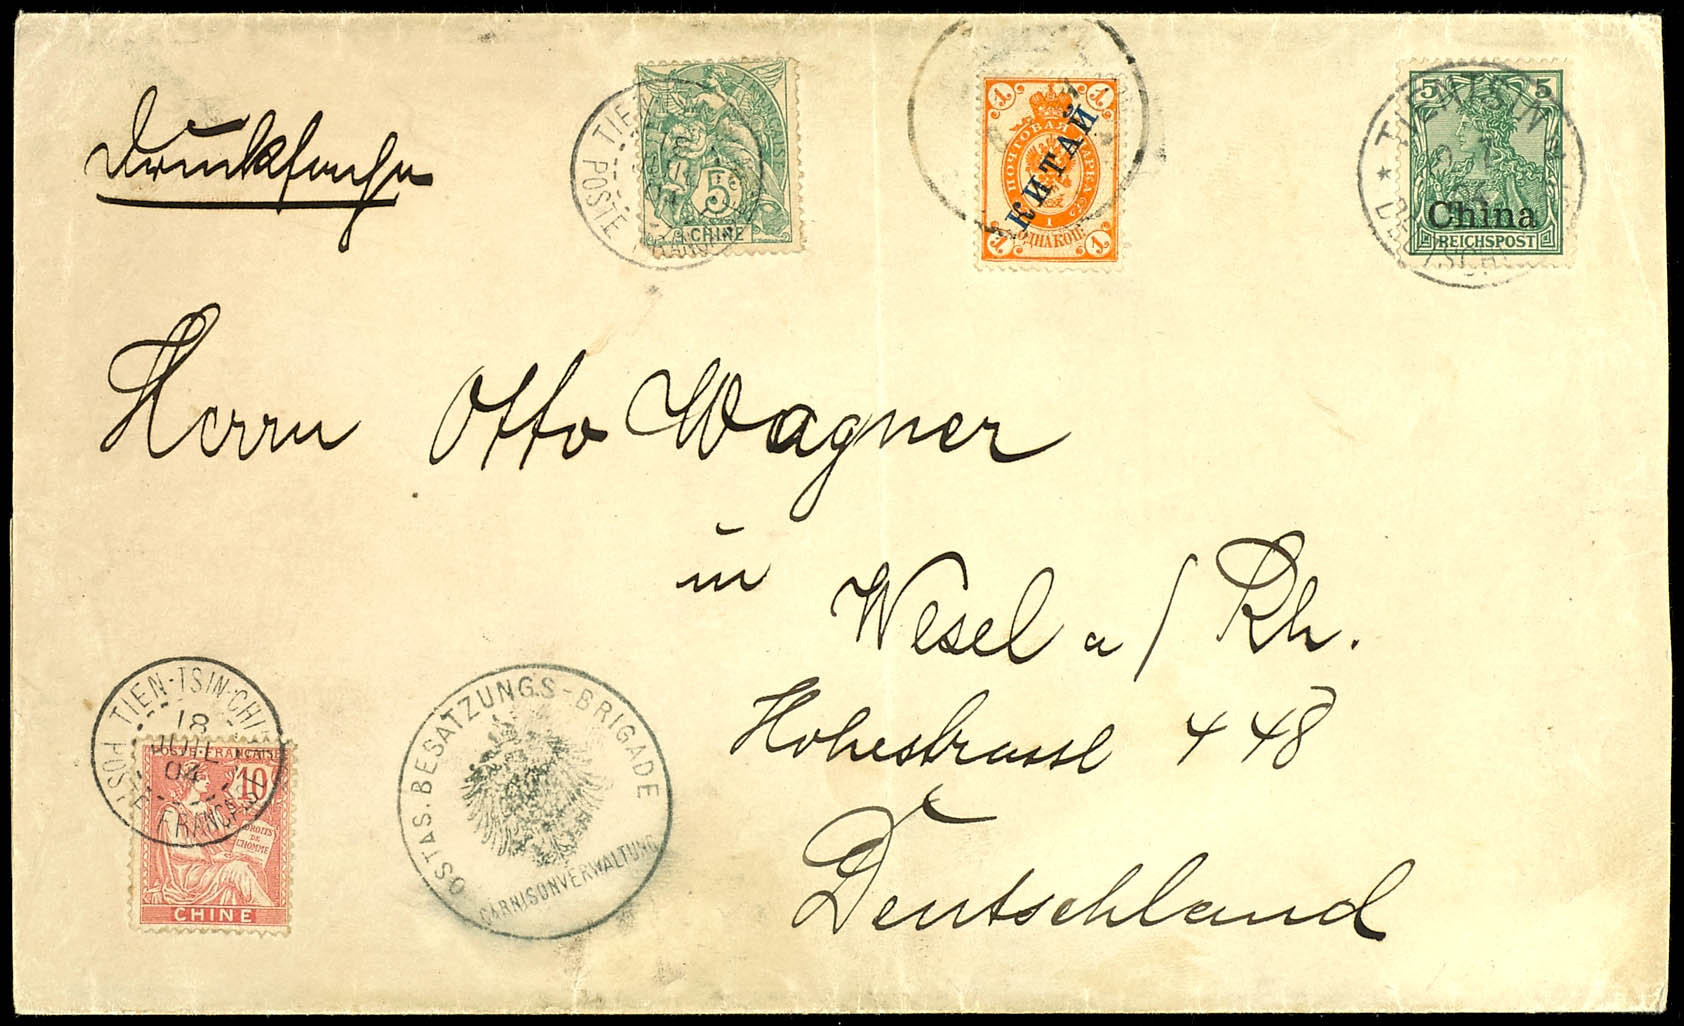 Drucksache
TIEN
POSTE
5
CHINE
1 1
ПОЧТОВАЯ МАРКА
КИТАЙ
1
ОДНА КОП.
1 1
5 5
TIENTSIN
DEUTSCHE
China
REICHSPOST
Herrn Otto Wagner
in
Wesel a/Rh.
Hohestrasse 448
Deutschland
TIEN-TSIN-CHINE
18
JUIL
04
POSTE FRANÇAISE
POSTE FRANÇAISE
10
DROITS
DE
L'HOMME
CHINE
OSTAS. BESATZUNGS-BRIGADE
GARNISONVERWALTUNG